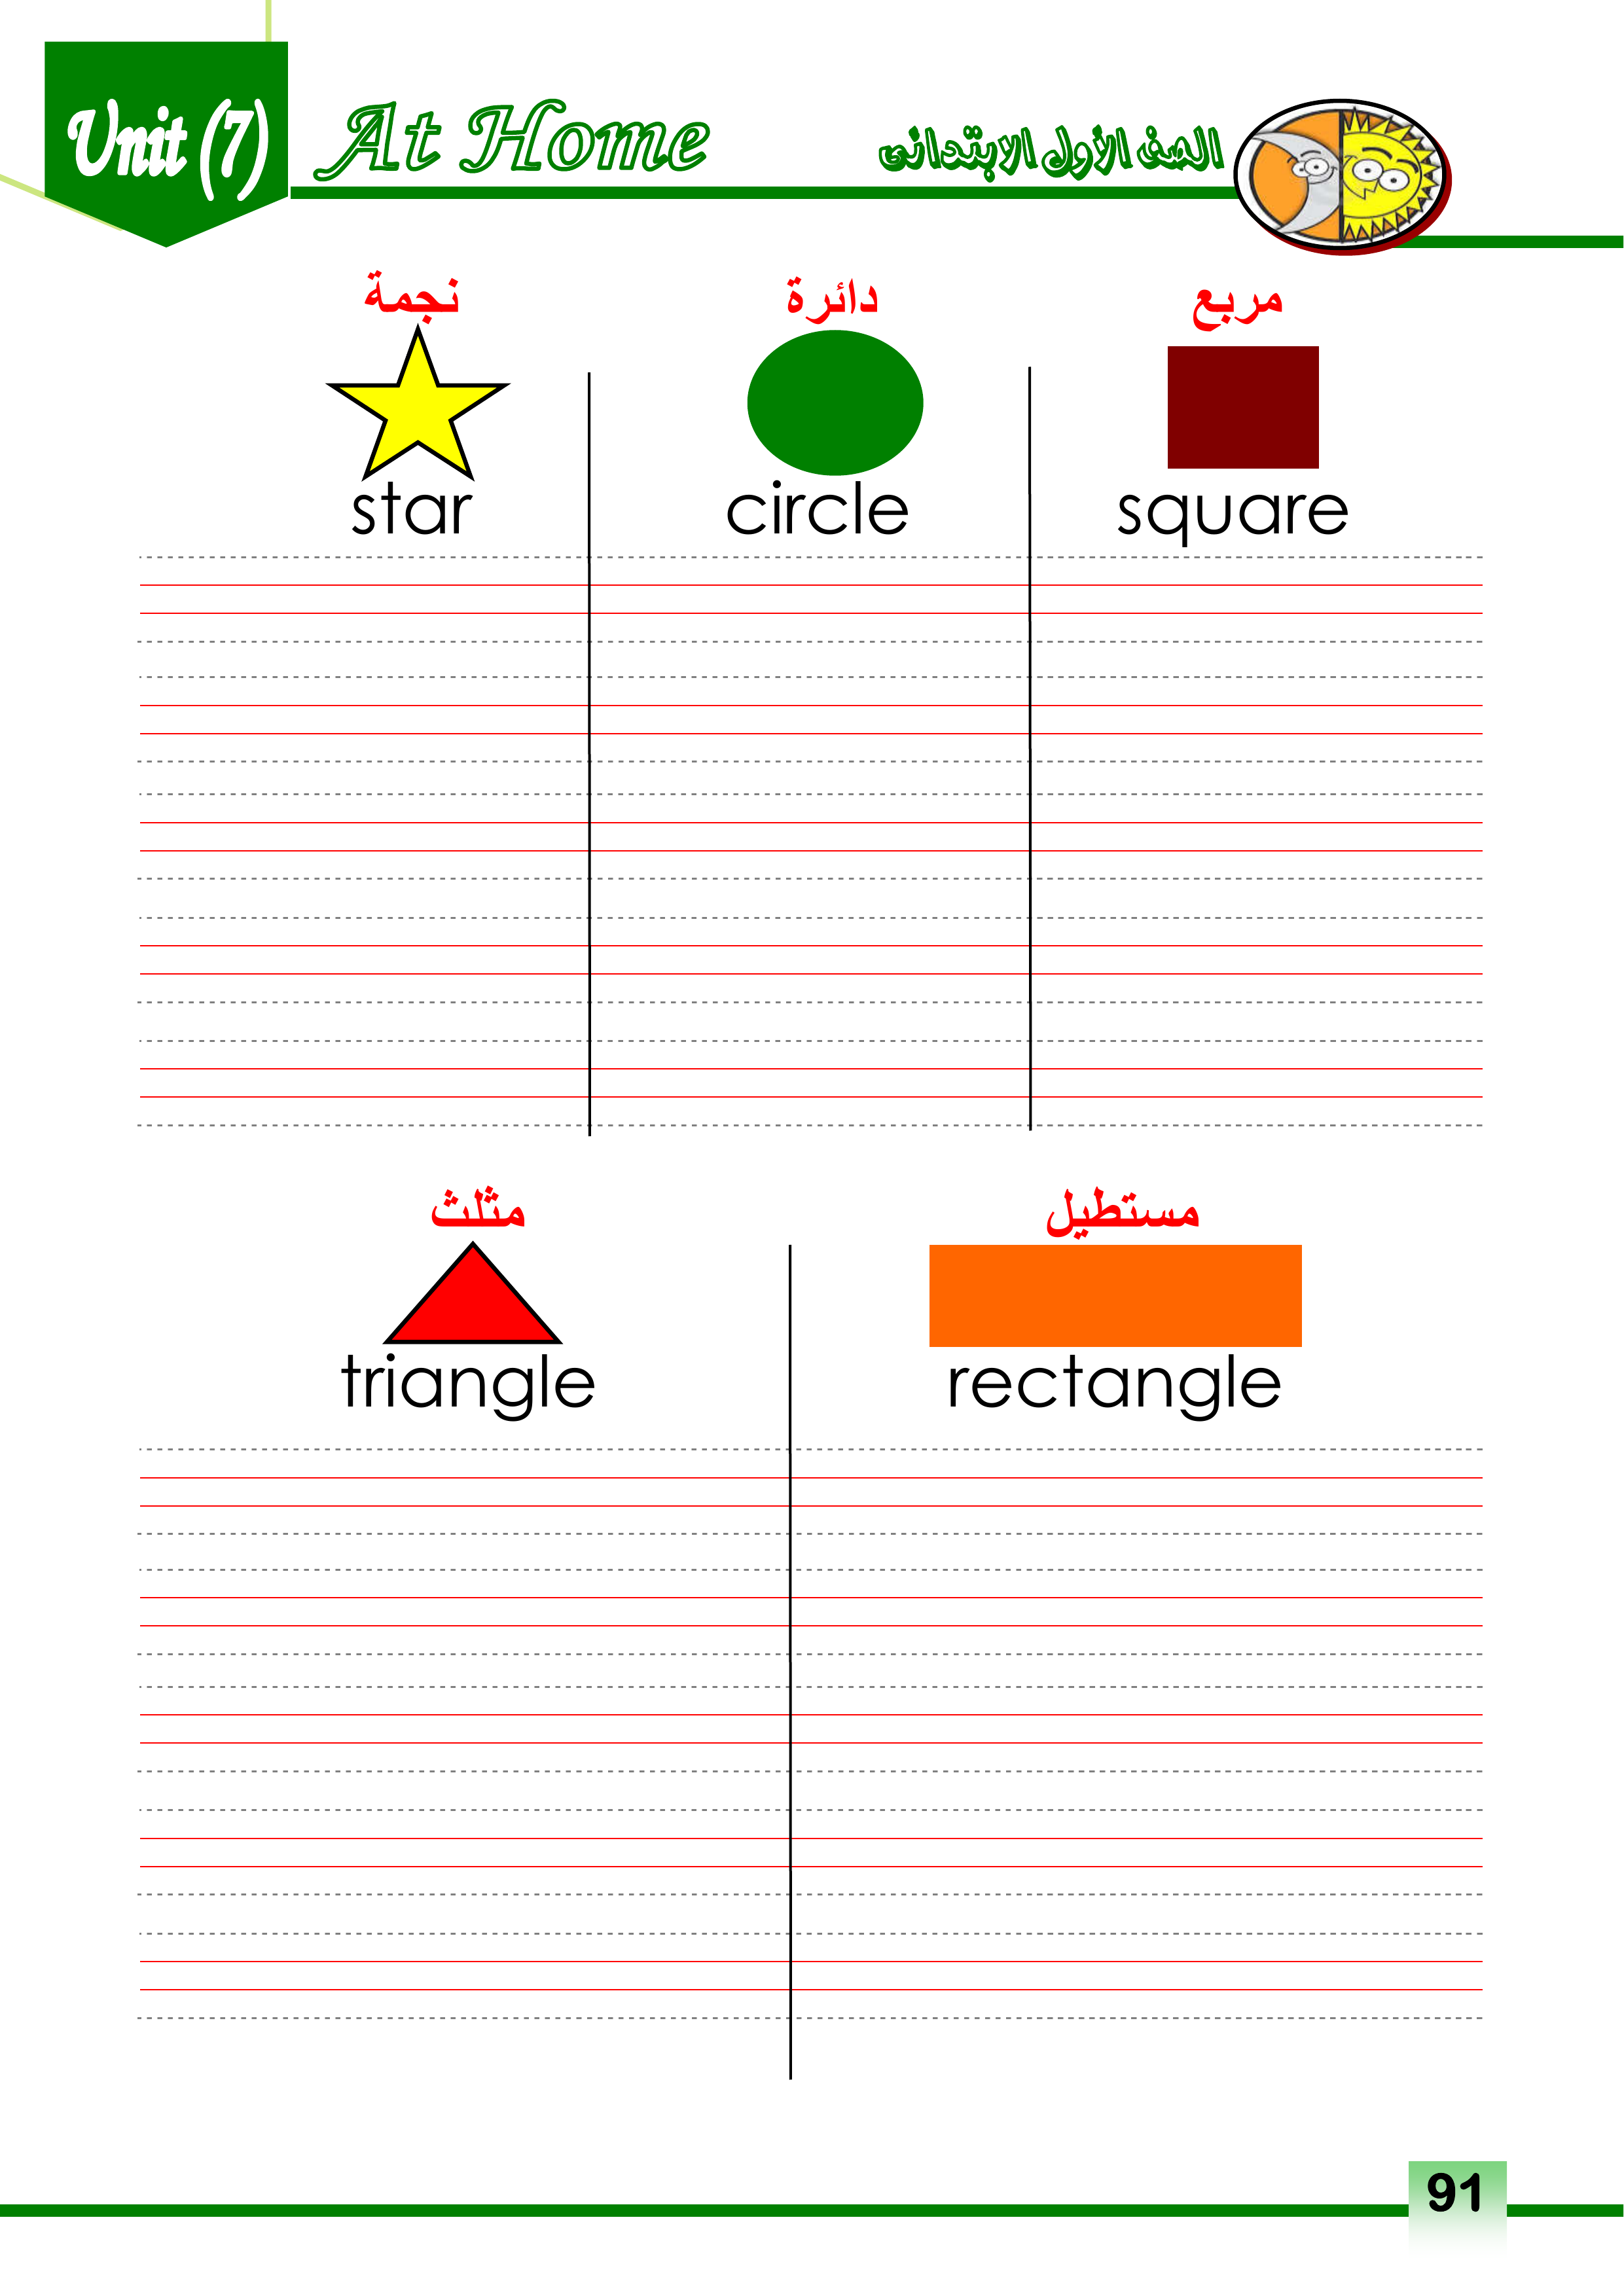 Unit (7)
At Home
الصف الأول الابتدائى
نجمة
دائرة
مربع
star
circle
square
مثلث
مستطيل
triangle
rectangle
91